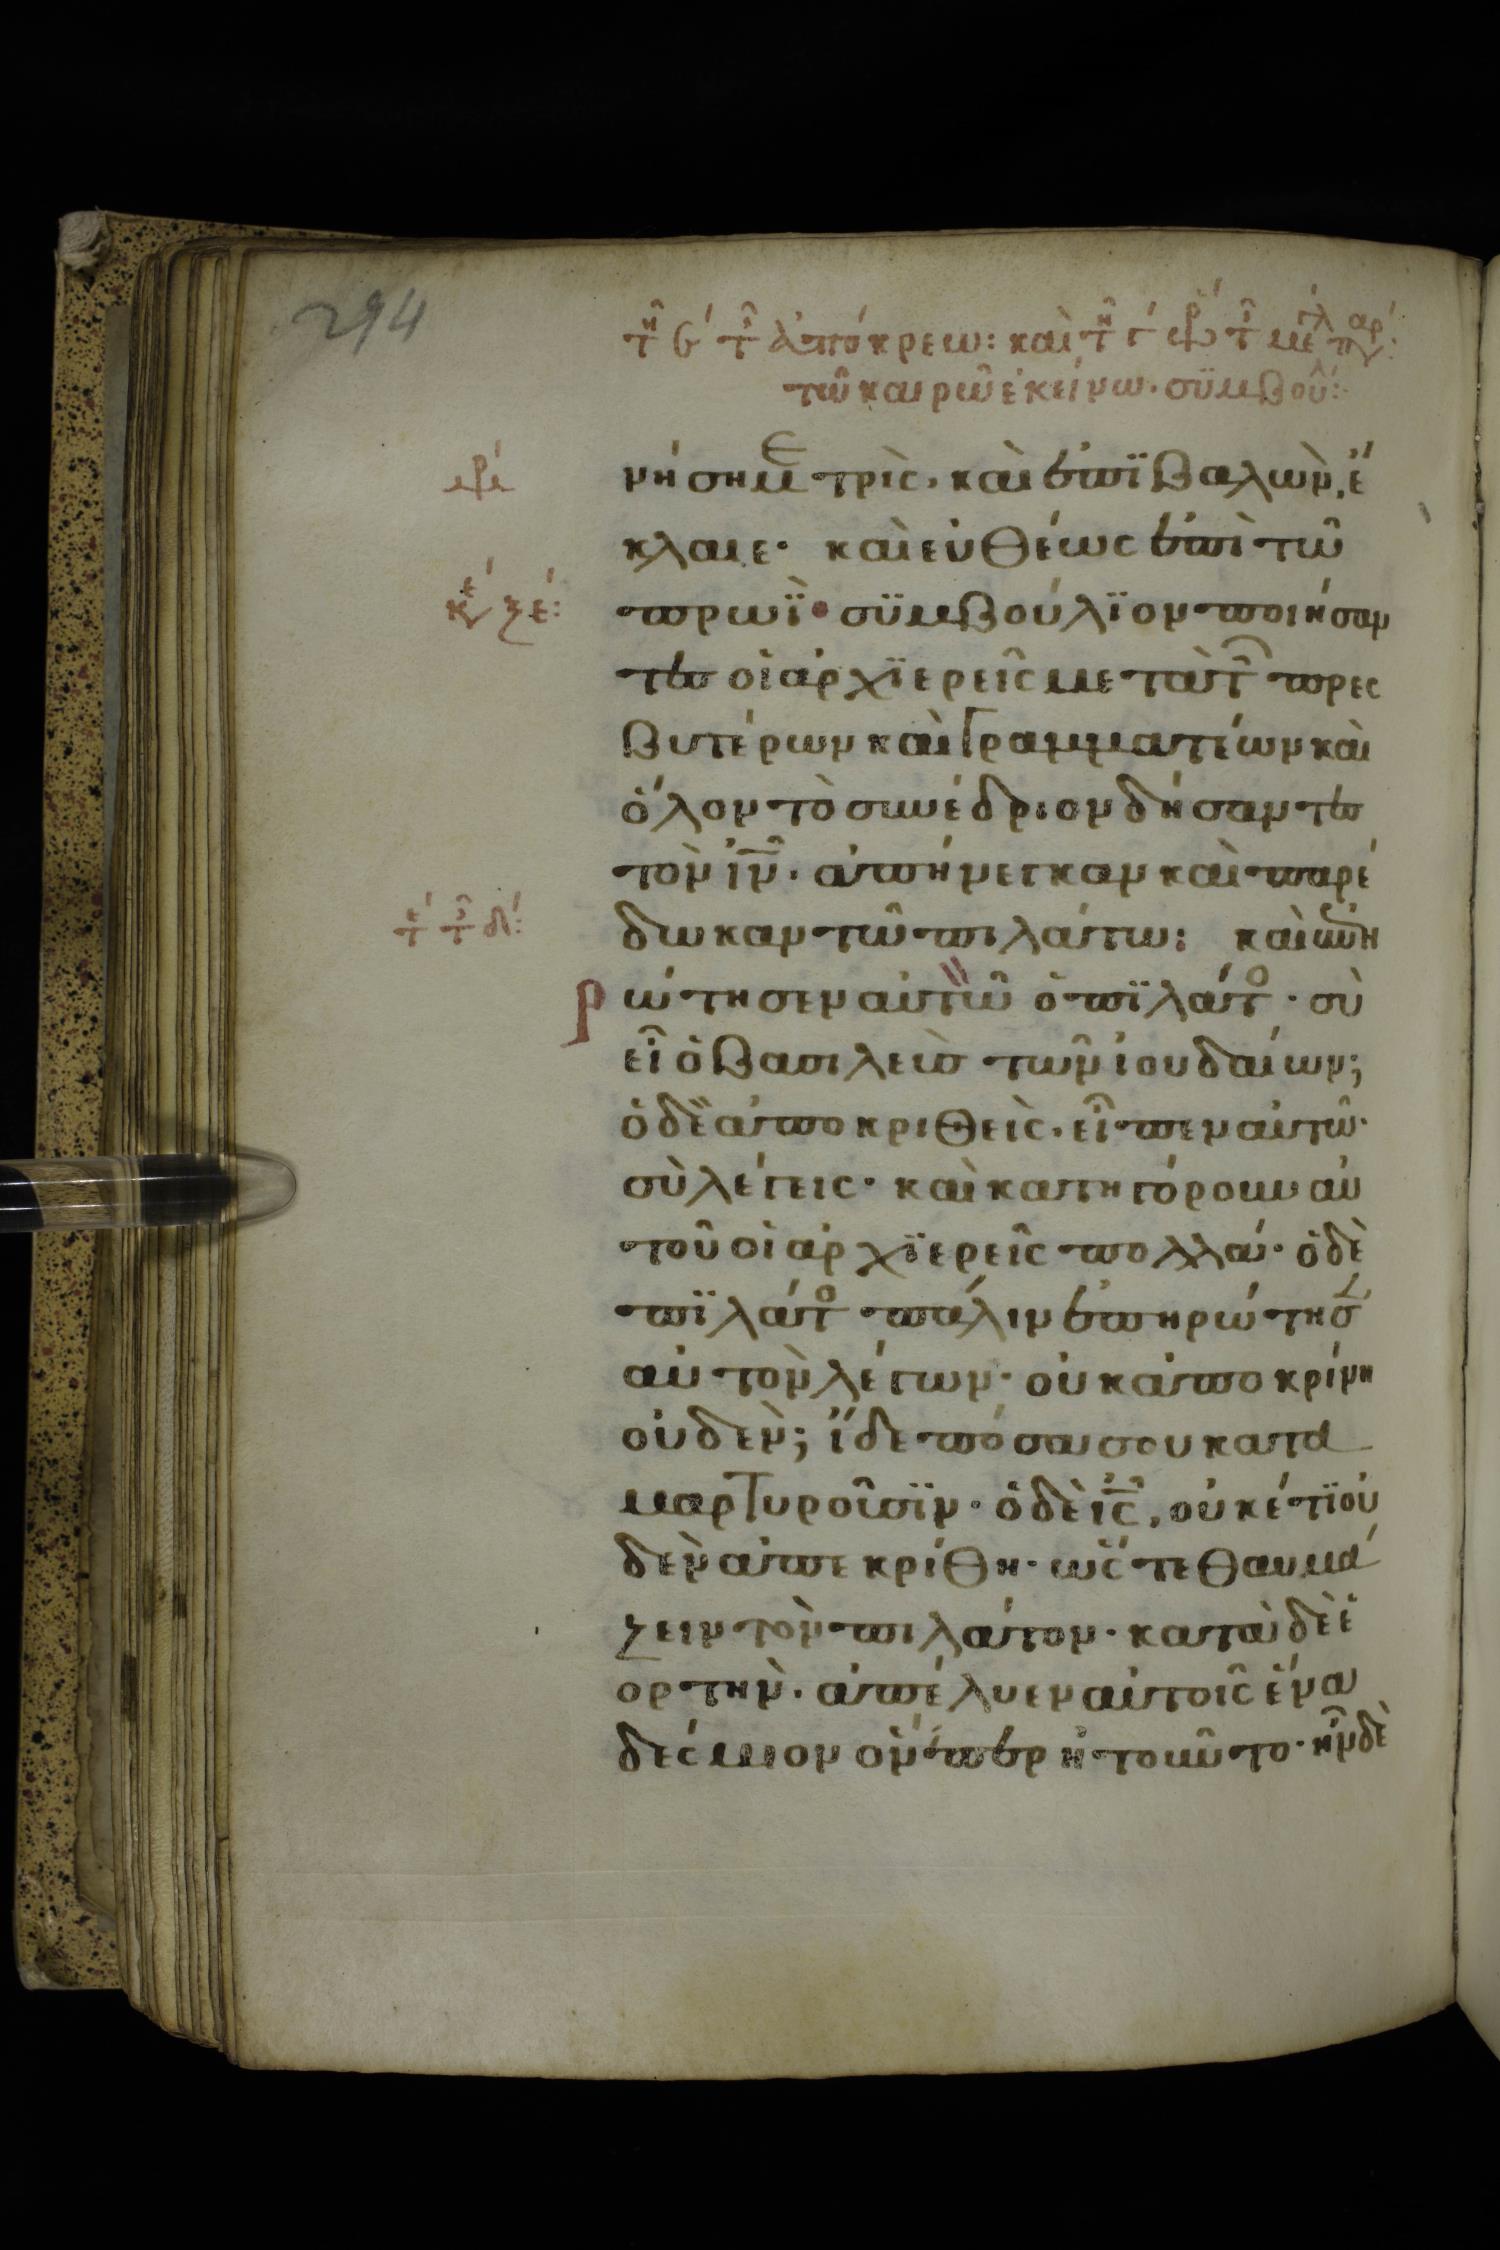 294
τῆ ϛ´ τῆς ἀπόκρεω: καὶ τῆ γ´ ὥρ τῆς μεγάλ παρ:
τῶ καιρῶ ἐκείνω. σϋμβοῦ:
νήση με τρὶς. καὶ ἐπϊβαλὼν, ἔ
κλαιε. καὶ εὐθέως ἐπὶ τῶ
πρωῒ. σϋμβούλϊον ποιήσαν
τες οἱ ἀρχϊερεῖς μετὰ τῶν πρεσ
βυτέρων καὶ γραμματέων καὶ
ὅλον τὸ συνέδριον δήσαντες
τὸν ἰν̅. ἀπήνεγκαν καὶ παρέ
δωκαν τῶ πιλάτω: καὶ ἐπη
ρώτησεν αὐτῶ ὁ πϊλάτος. σὺ
εἶ ὁ βασιλεὺς τῶν ἰουδαίων;
ὁ δὲ ἀποκριθεὶς. εἶπεν αὐτῶ.
σὺ λέγεις. καὶ κατηγόρουν αὐ
τοῦ οἱ ἀρχϊερεῖς πολλά. ὁ δὲ
πϊλάτος πάλιν ἐπηρώτησεν
αὐτὸν λέγων. οὐκ ἀποκρίνη
οὐδὲν; ἴδε πόσα σου κατα
μαρτυροῦσϊν. ὁ δὲ ἰς̅, οὐκέτϊ οὐ
δὲν ἀπεκρίθη. ὥστε θαυμά
ζειν τὸν πιλάτον. κατὰ δὲ ἑ
ορτὴν. ἀπέλυεν αὐτοῖς ἕνα
δέσμιον ὃν περ ἠτοῦντο. ἦν δὲ